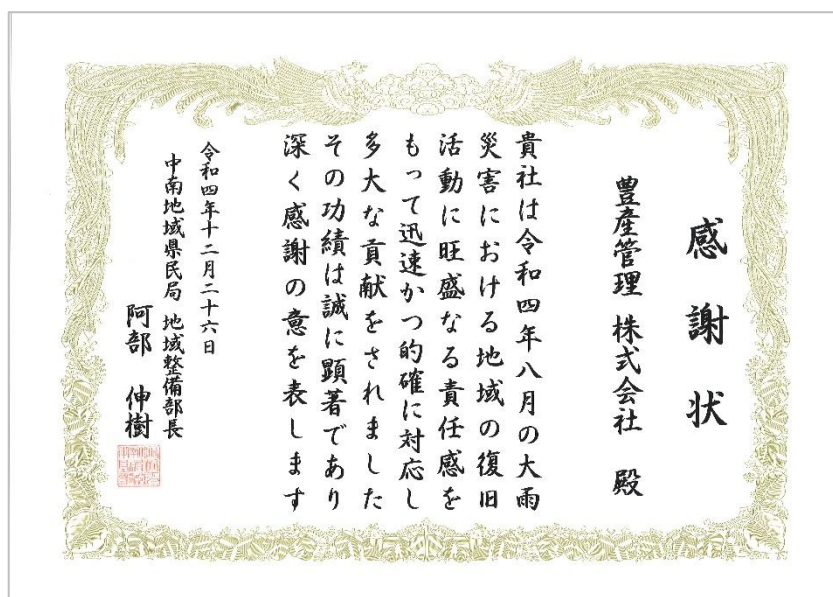 感謝状
豊産管理 株式会社 殿
貴社は令和四年八月の大雨
災害における地域の復旧
活動に旺盛なる責任感を
もって迅速かつ的確に対応し
多大な貢献をされました
その功績は誠に顕著であり
深く感謝の意を表します
令和四年十二月二十六日
中南地域県民局 地域整備部長
阿部 伸樹